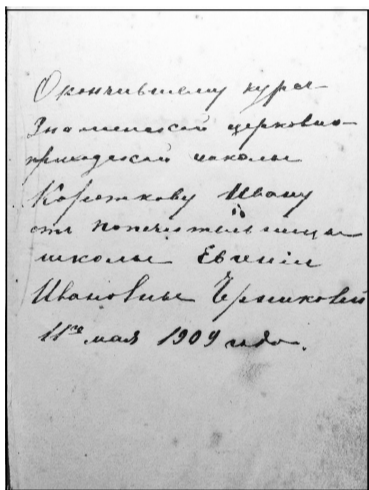 Окончившему курсъ
Знаменской церковно-
приходской школы
Короткову Ивану
отъ попечительницы
школы Евгеніи
Ивановны
11го мая 1909 года.